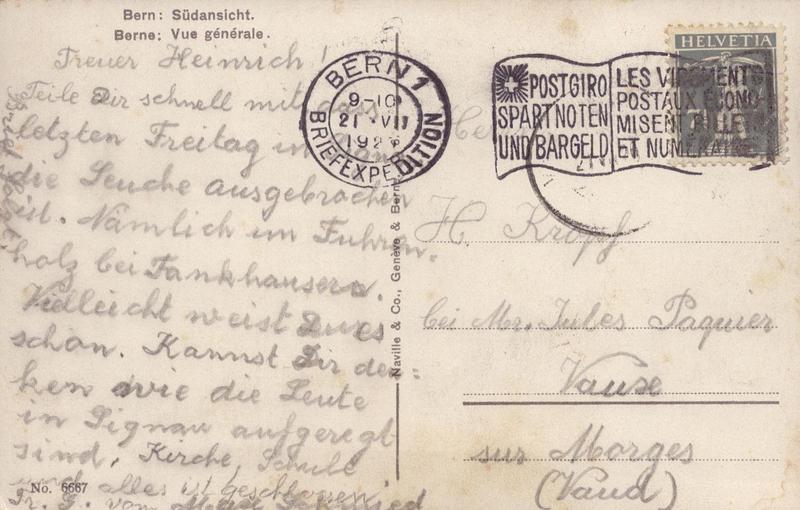 Bern: Südansicht.
Berne: Vue générale.
Treuer Heinrich!
Teile Dir schnell mit dass
letzten Freitag in
die Seuche ausgebrochen
ist. Nämlich im Fuhren-
holz bei Fankhausern.
Vielleicht weist Du es
schon. Kannst Dir den=
ken wie die Leute
in Signau aufgeregt
sind. Kirche, Schule
und alles ist geschlossen
Fr. G. vom
Brief folgt
No. 6667
Naville & Co., Genève & Bern
BERN 1
9-10
21 VII
192
BRIEFEXPEDITION
POSTGIRO
SPART NOTEN
UND BARGELD
LES VIREMENTS
POSTAUX ÉCONO-
MISENT BILLETS
ET NUMÉRAIRE
HELVETIA
H. Kropf
bei Mr. Jules Paquier
Vause
sur Morges
(Vaud)